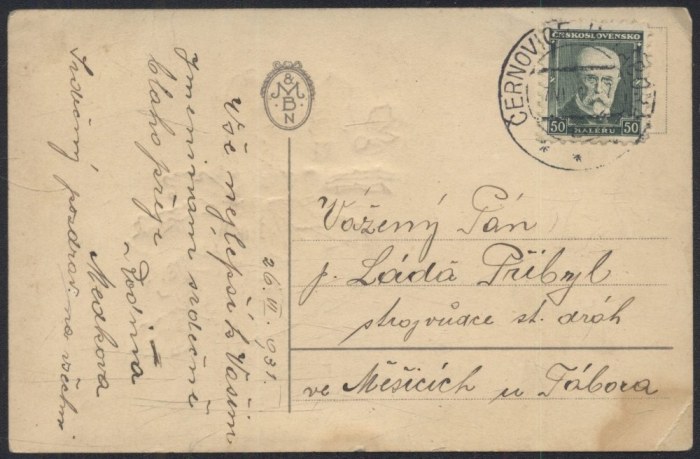 26. VI. 931.
Vše nejlepší k Vašim
jmeninam srdečně
blaho přeje
Rodina
Medkova
Srdečný pozdrav na všechny
M & B N
ČERNOVICE U
ČESKOSLOVENSKO
50 HALÉŘŮ 50
Vážený Pán
p. Láďa Přibyl
strojvůdce st. drah
ve Měšicích u Tábora